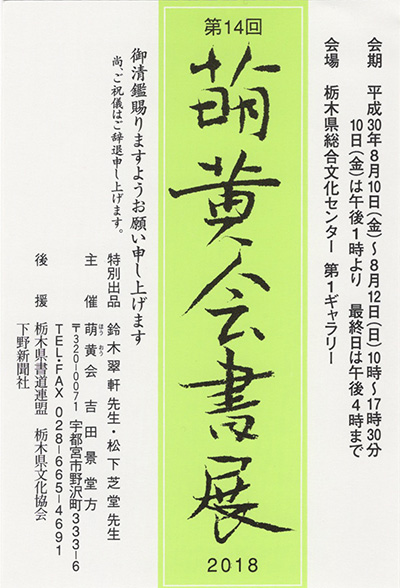 会期　平成30年8月10日(金)～8月12日(日)10時～17時30分
10日(金)は午後1時より　最終日は午後4時まで
会場　栃木県総合文化センター　第1ギャラリー
第14回
萠黄会書展
2018
御清鑑賜りますようお願い申し上げます
尚、ご祝儀はご辞退申し上げます。
特別出品　鈴木翠軒先生・松下芝堂先生
主催　萌黄会　吉田景堂方
ほうおう
〒320-0071　宇都宮市野沢町333-6
TEL・FAX　028-665-4691
後援　栃木県書道連盟　栃木県文化協会
下野新聞社